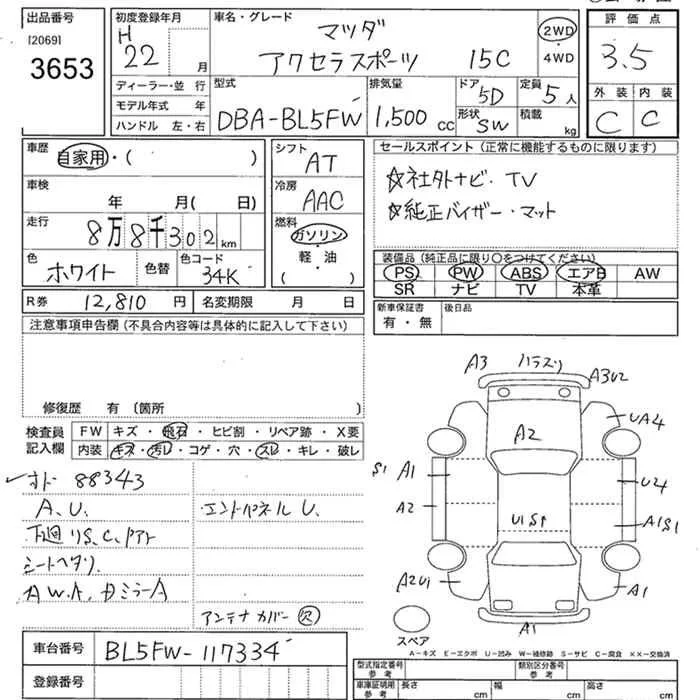 出品番号 初度登録年月 車名・グレード 評価点
[2069] H マツダ 2WD
3653 22 月 アクセラスポーツ 15C ・ 4WD 3.5
ディーラー・並行 型式 排気量 ドア 定員 外装 内装
モデル年式 年 DBA-BL5FW 1,500 cc 5D 5 人 C C
ハンドル 左・右 形状 SW 積載 kg
車歴 自家用・( ) シフト AT セールスポイント(正常に機能するものに限ります)
車検 年 月( 日) 冷房 AAC ☆社外ナビ・TV
走行 8万8千302 km 燃料 ガソリン ・ 軽・油 ( ) ☆純正バイザー・マット
色 ホワイト 色替 色コード 34K 装備品(純正品に限り○をつけてください)
PS PW ABS エアB AW
SR ナビ TV 本革
R券 12,810 円 名変期限 月 日 新車保証書 有・無 後日品
注意事項申告欄(不具合内容等は具体的に記入して下さい)
修復歴 有 〔箇所 〕
検査員 記入欄 FW キズ・飛石・ヒビ割・リペア跡・X要
内装 キズ・汚レ・コゲ・穴・スレ・キレ・破レ
オド 88343
A、U、 エンドパネル U、
下廻 リS、C、
シートヘタリ
A W、A、 ミラーA
アンテナカバー 欠
A3 A3U2
A2 UA4
S1 A1 U24
A2 U1S1 A1S1
A2U1 A1
A1
スペア
A-キズ E-エクボ U-凹み W-補修跡 S-サビ C-腐食 XX-交換済
車台番号 BL5FW-117334
登録番号
型式指定番号 参考 類別区分番号 参考
車庫証明用 参考 長さ cm 幅 cm 高さ cm